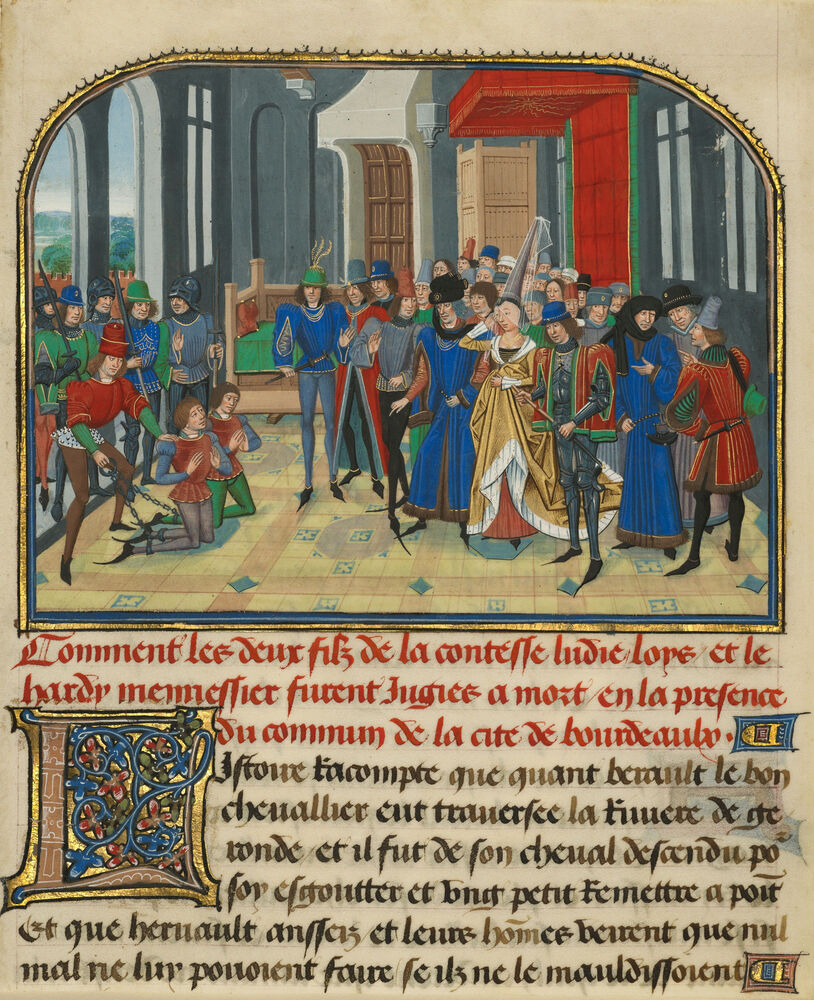 Comment les deux filz de la contesse ludie loys / et le
hardy mennessier furent Jugies a mort / en la presence
du commun de la cite de bourdeaulx .
Listoire Racompte que quant berault le bon
cheuallier eut trauersee la Riuiere de ge
ronde / et il fut de son cheual descendu po
soy esgoutter et vng petit Remettre a point
Et que heruault ansseis et leurs hommes veirent que nul
mal ne luy pouoient faire se ilz ne le mauldissoient